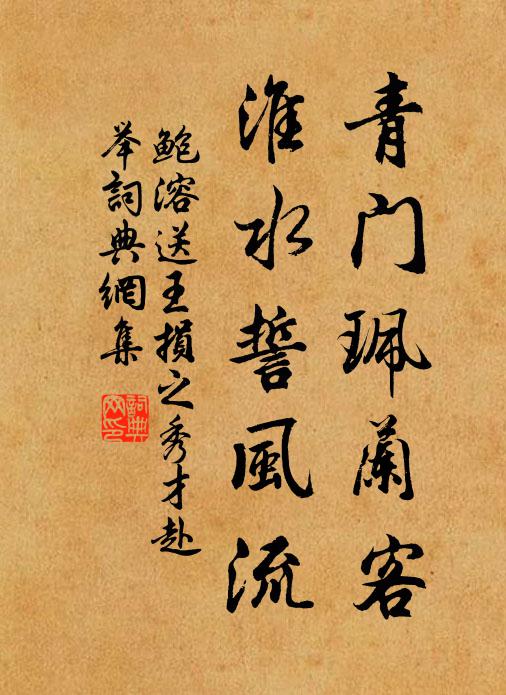 青门珮蘭客
淮水誓風流
鲍溶送王損之秀才赴
举詞典網集
詞典网印